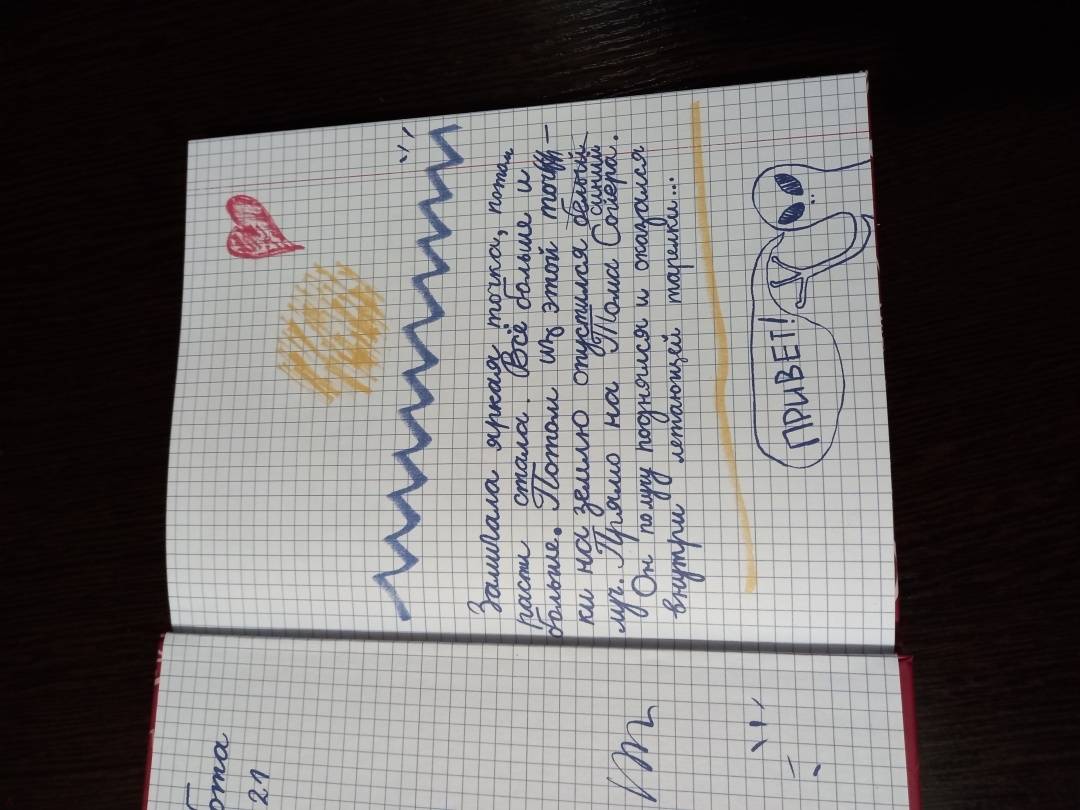 Замигала яркая точка, потом
расти стала. Всё больше и
больше. Потом из этой точ-
ки на землю опустился белый
синий
луч. Прямо на Тома Сойера.
Он по лучу поднялся и оказался
внутри летающей тарелки...
ПРИВЕТ!
21